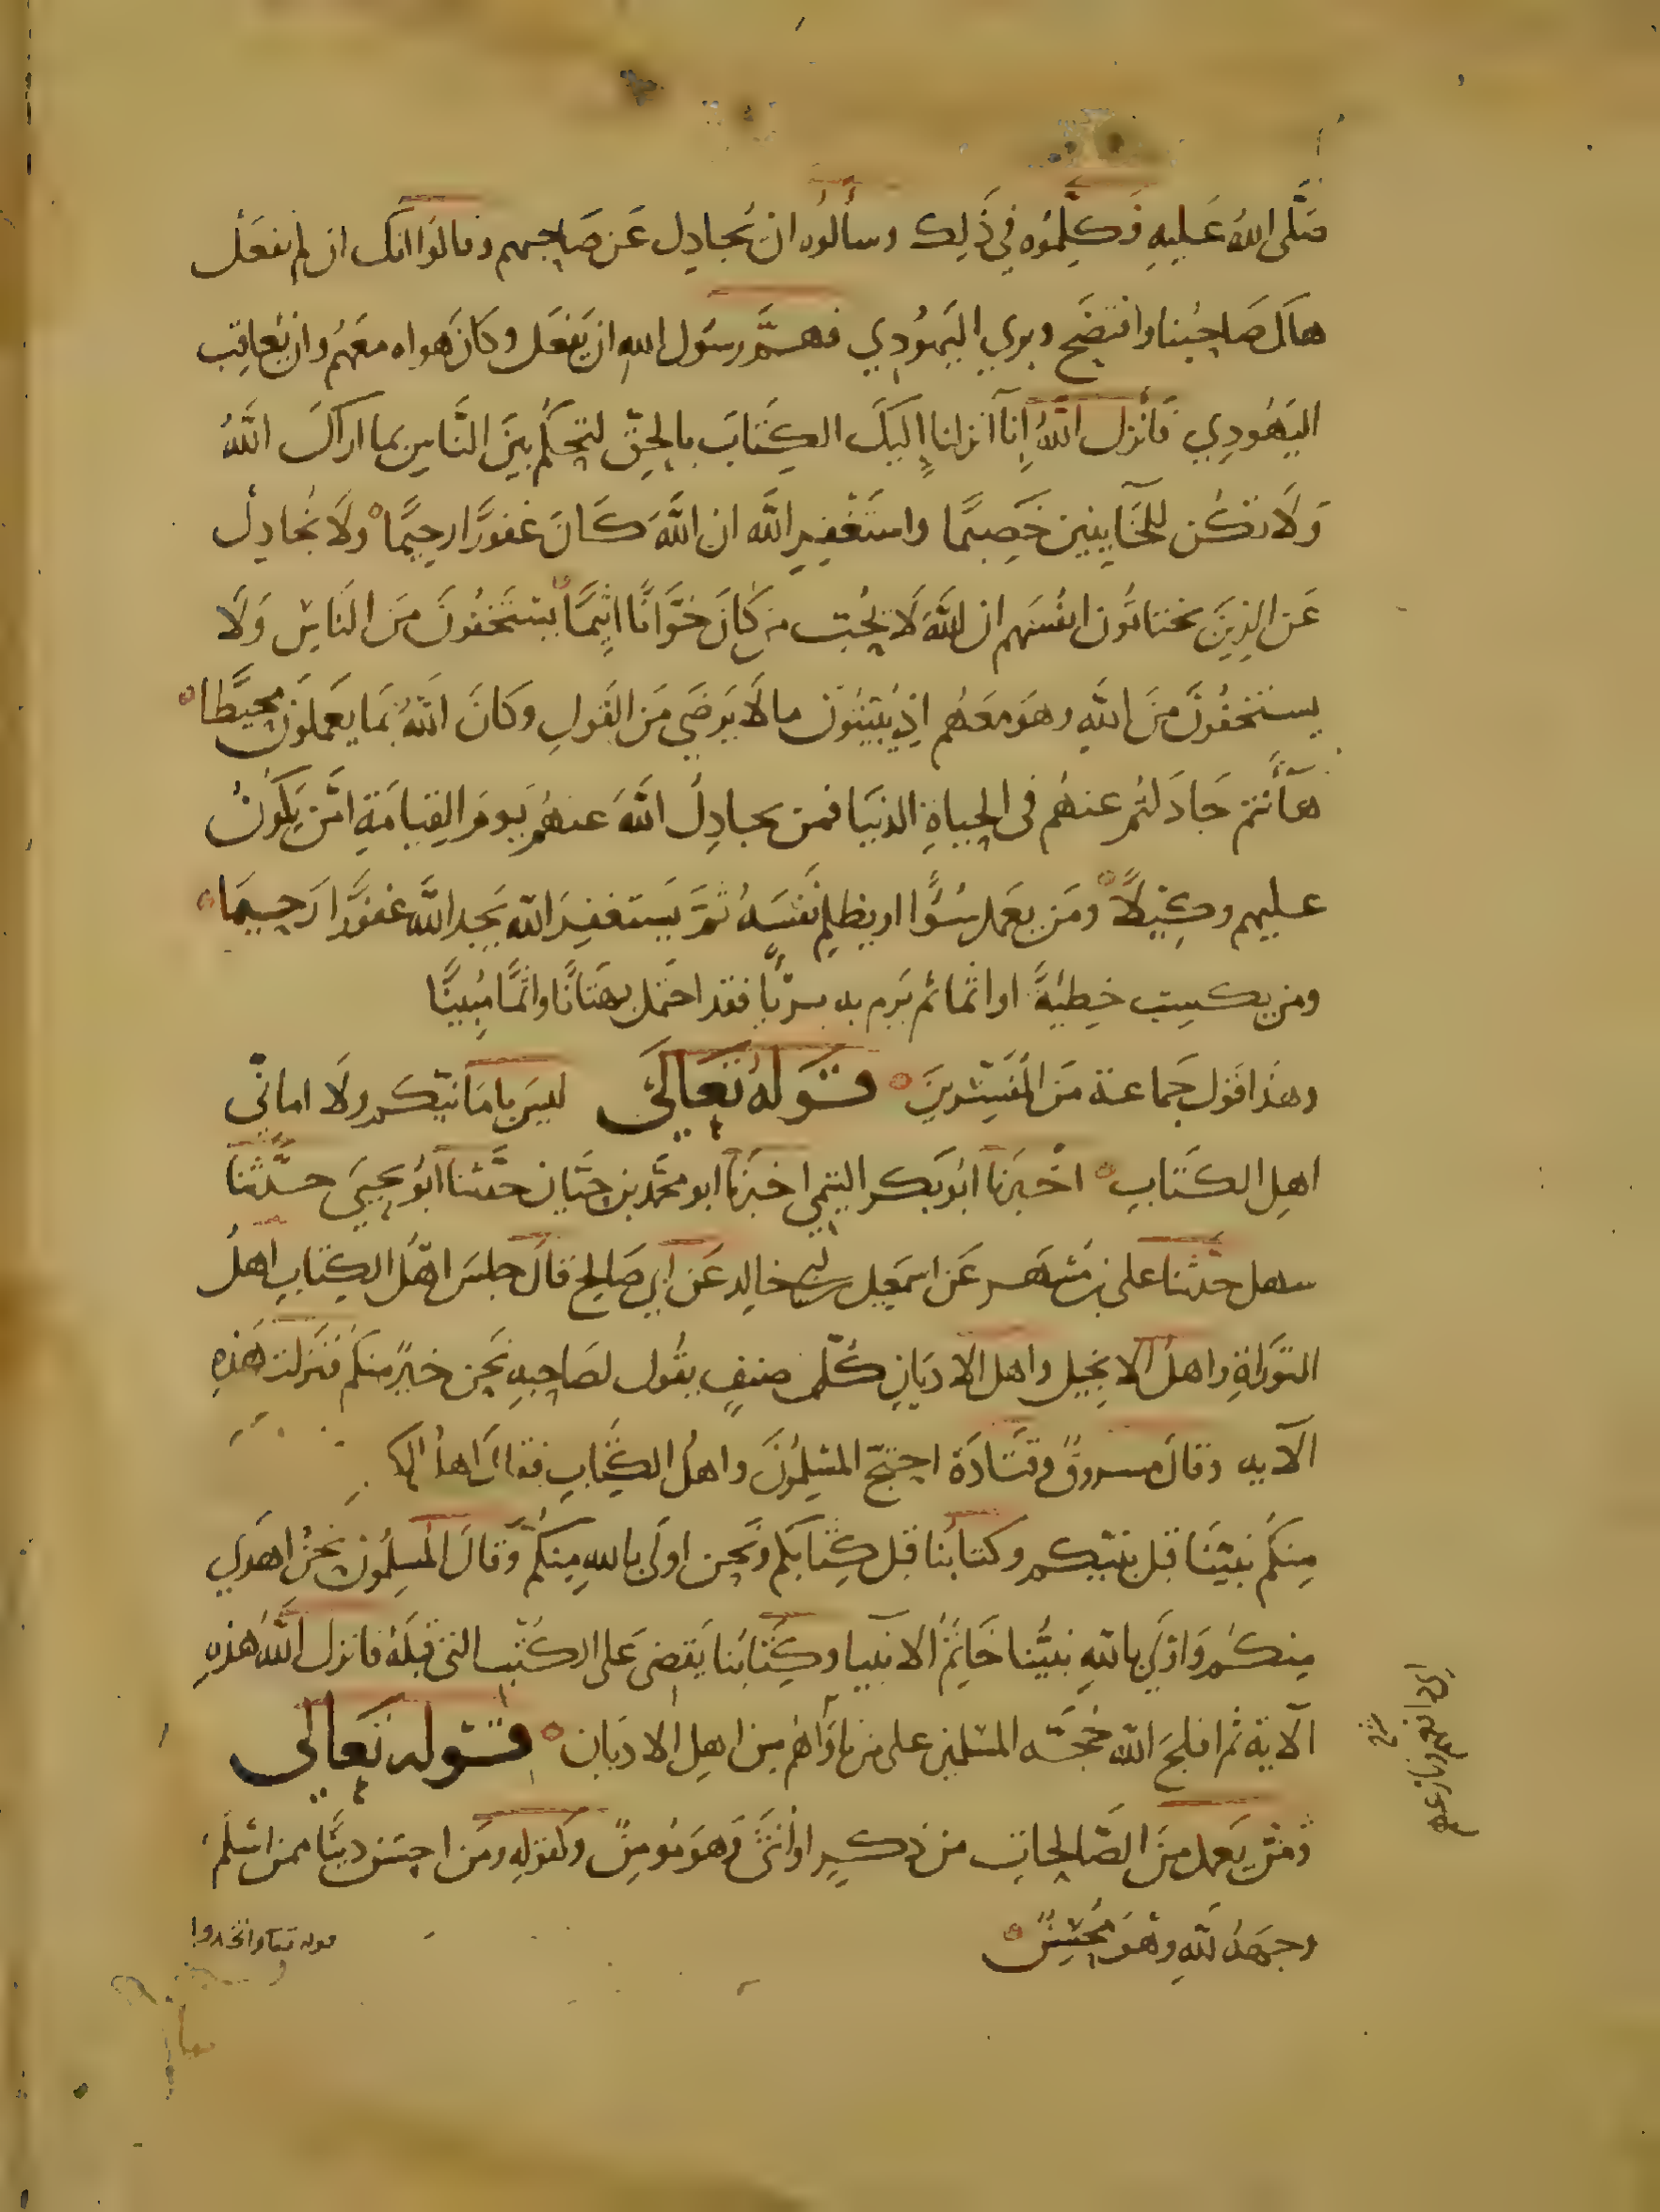 صَلَّى اللهُ عَليهِ فَكلّموُه فِي ذَلِك وسأَلوُه ان يُجادِل عَن صَاحِبهم وقالوُا انك ان لم تفعَل
هلك صَاحِبُنا وافتضَح وبري اليَهُودِي فهمَّ رسوُل الله ان يَفعَل وكانَ هواه معَهُم وان يُعاقِب
اليَهُودِي فَأَنزل اللهُ إِنَّا انزلنا إليكَ الكِتَابَ بالحِقّ لتحكُم بيَن النَّاسِ بما اراكَ اللَّهُ
وَلَا تكُن للخَاينِين خَصِيمًا واستَغْفِرِ اللَّه ان اللَّهَ كَانَ غفورًا رحِيمًا ولَا تُجادِلْ
عَن الذِينَ يختانوُن انفُسَهم ان اللَّهَ لَا يُحِب من كَانَ خوَّانًا اثِيمًا يستَخفُونَ مَن النَاسِ وَلَا
يستَخفُونَ مِنَ اللَّهِ وهَو معَهُم اذ يُبَيّتُون ما لَا يَرضَى مَن القَولِ وكَانَ اللهُ بمَا يعَملوُن محِيطًا
هَآأَنتم جَادَلتُم عنهُم فى الحِياةِ الدنيَا فمن يجادِلُ اللَّهَ عنهُم يَومَ القِيامَةِ امَّن يَكوُنُ
عليهم وكِيْلًا ومَن يعَمل سُوًا او يظلِم نَفسَهُ ثمَّ يَستغفِرَ الله يَجِد اللَّه غفورًا رَحِيمًا
ومن يكسِب خِطيَةً او اثما ثم يَرم به بريًّا فقد احتمَل بهتَانًا واثمًا مُبِينًا
وهذا قَول جَماعَة مَن المُفسِّرينَ قَولُهُ تَعَالَى ليسَ بامَانيّكم ولَا امانّى
اهِل الكَتابِ اخْبرَنا ابُو بَكر التيمي اخبَرنَا ابو محَمَّد بن حيَّان حدَّثنا ابُو يحيىَ حدَّثنَا
سهل حدَّثنا على بن مُسْهَر عَن اسمَعِيل بن ابى خالِد عَن ابي صَالِح قالَ جلسَ اهْلُ الكِتابِ اهلُ
التوَراةِ واهلُ الانجِيل واهل الاديَانِ كُلّ صنفٍ يقُول لصَاحِبهِ نَحن خَيرٌ منكُم فنَزلت هَذِهِ
الآيه وقالَ مسروقٌ وقتَادَة احتجّ المسْلِمُونَ واهلُ الكِتَابِ فقال اهلُ
مِنكُم نبيّنَا قبْل نبيّكم وكتابُنا قَبْل كِتابكم ونَحِن اولَى بالله مِنكُم وَقَالَ المُسلِمُون نحنُ اهدَي
مِنكُم وَاولَي باللهِ نبيُّنا خَاتِمُ الانبيا وكِتَابُنا يَقضىَ عَلى الكتُب التى قبَلهُ فانزل اللَّهُ هَذِهِ
الآيَة ثم افلجَ الله حُجَّة المسْلمِين على من ناوَأهُم مِن اهِل الاديَان قَولهُ تَعَالَى
وَمَنْ يَعمل مِنَ الصَّالحِاتِ من ذكرٍ او أنثىَ وَهوَ مُومِنٌ ولقولِهِ ومَن احسَن دينًا ممن اسْلَمَ
وجهَهُ للَّهِ وهُوَ محُسِنٌ
قوله تعالى واتخذوا